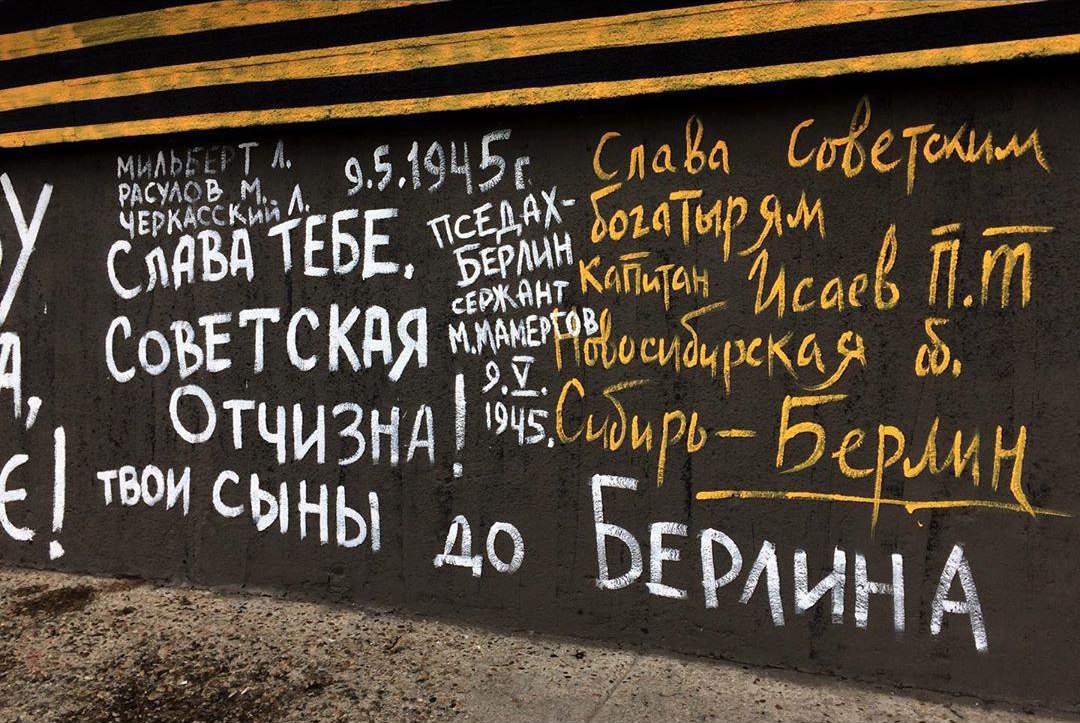 У
А,
Є!
МИЛЬБЕРТ Л.
РАСУЛОВ М.
ЧЕРКАССКИЙ Л.
9.5.1945 г.
СЛАВА ТЕБЕ.
СОВЕТСКАЯ
ОТЧИЗНА!
ТВОИ СЫНЫ
ДО БЕРЛИНА
ПСЕДАХ-
БЕРЛИН
СЕРЖАНТ
М. МАМЕРГОВ
9.V.
1945.
Слава Советским
богатырям
Капитан Исаев П.Т
Новосибирская об.
Сибирь - Берлин